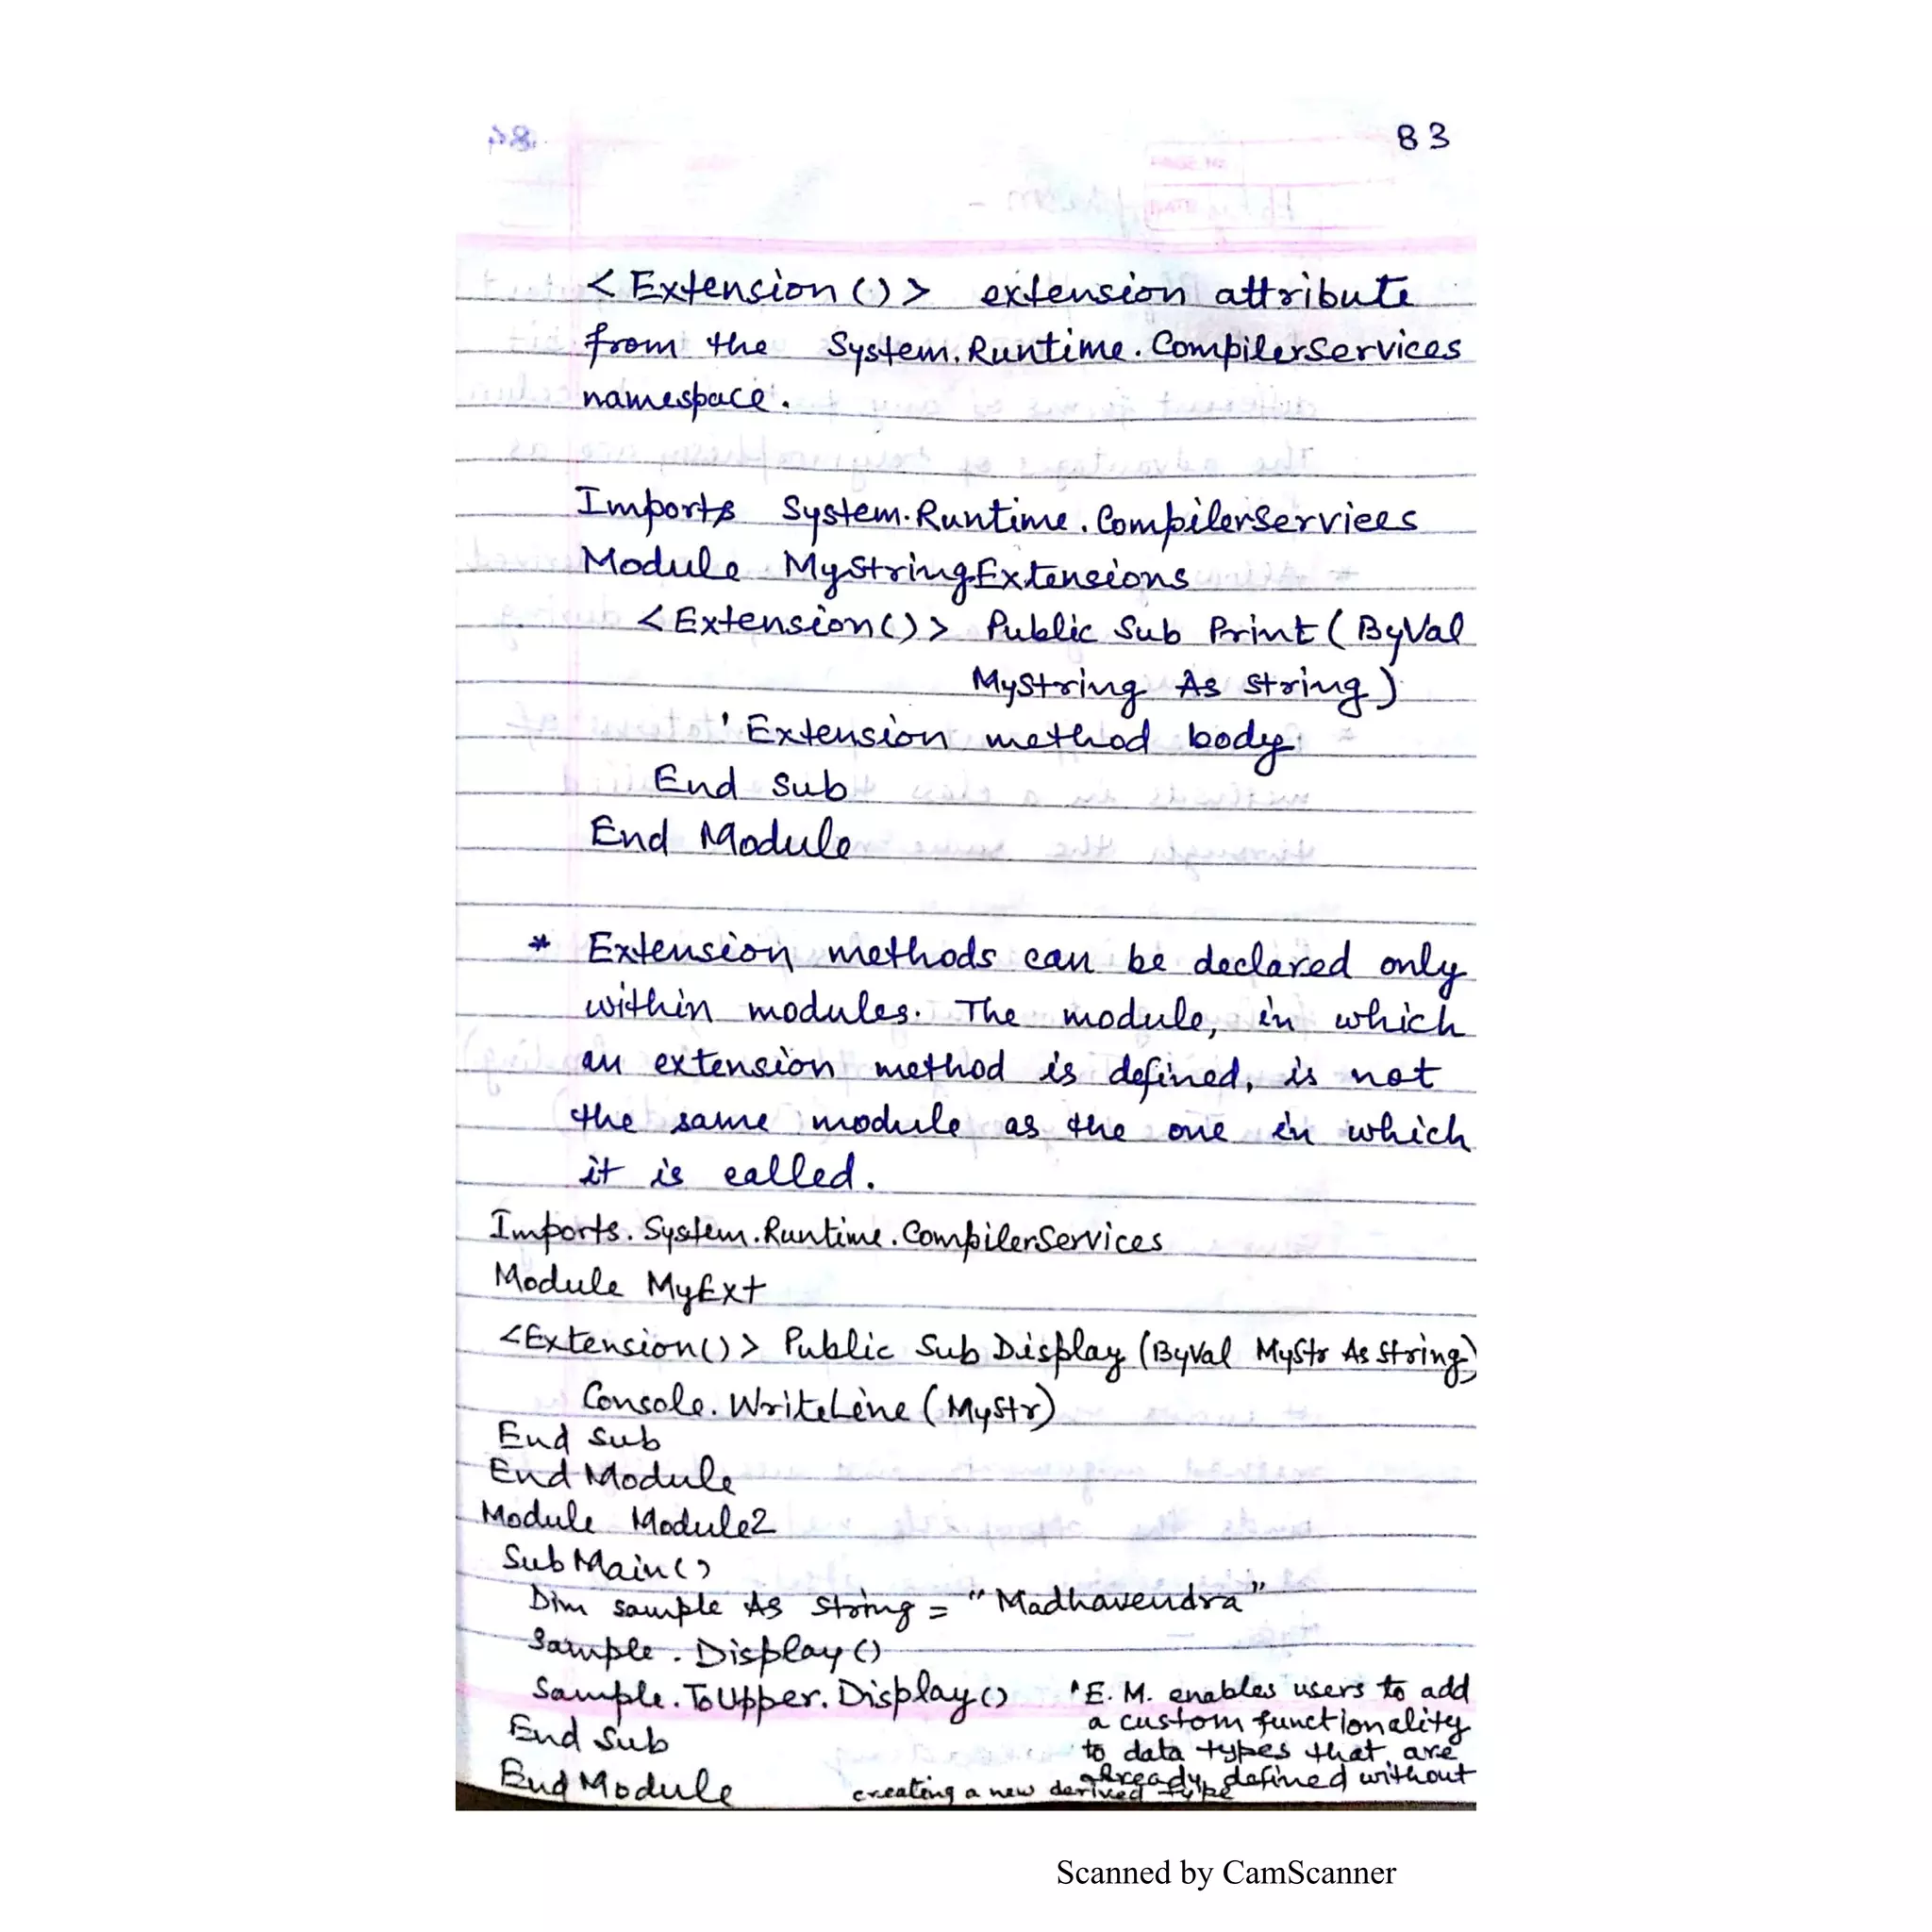 83
<Extension()> extension attribute
from the System.Runtime.CompilerServices
namespace.
Imports System.Runtime.CompilerServices
Module MyStringExtensions
<Extension()> Public Sub Print(ByVal
MyString As String)
'Extension method body
End Sub
End Module
* Extension methods can be declared only
within modules. The module, in which
an extension method is defined, is not
the same module as the one in which
it is called.
Imports.System.Runtime.CompilerServices
Module MyExt
<Extension()> Public Sub Display (ByVal MyStr As String)
Console.WriteLine(MyStr)
End Sub
End Module
Module Module2
Sub Main()
Dim sample As String = "Madhavendra"
Sample.Display()
Sample.ToUpper.Display()
End Sub
End Module
'E.M. enables users to add
a custom functionality
to data types that are
already defined without
creating a new derived type
Scanned by CamScanner